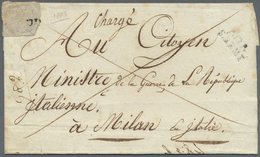 Chargé
Au Citoyen
Ministre de la Guerre de La République
Italienne.
à Milan en Italie